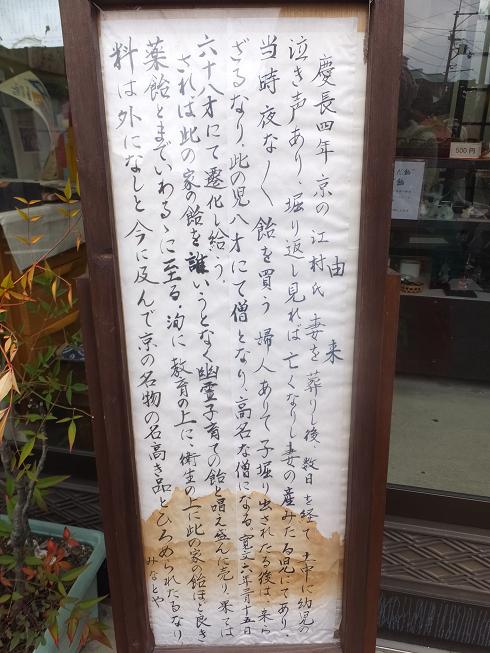 由来
慶長四年 京の江村氏 妻を葬りし後、数日を経て 土中に幼児の
泣き声あり、堀り返し見れば 亡くなりし妻の産みたる児にてあり、
当時 夜な〱 飴を買う 婦人ありて 子堀り出されたる後は、来ら
ざるなり、此の児八才にて僧となり、高名な僧になる。寛文六年三月十五日
六十八才にて遷化し給う。
されば此の家の飴を誰いうとなく幽霊子育ての飴と唱え盛んに売り、果ては
薬飴とまでいわるゝに至る。洵に 教育の上に、衛生の上に此の家の飴ほど良き
料は外になしと 今に及んで京の名物の名高き品とひろめられたるなり
みなとや
500円